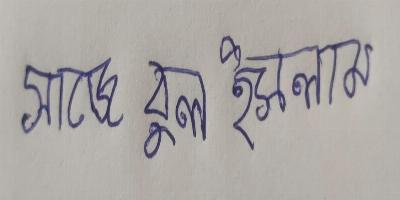 সাজে বুল ইসলাম